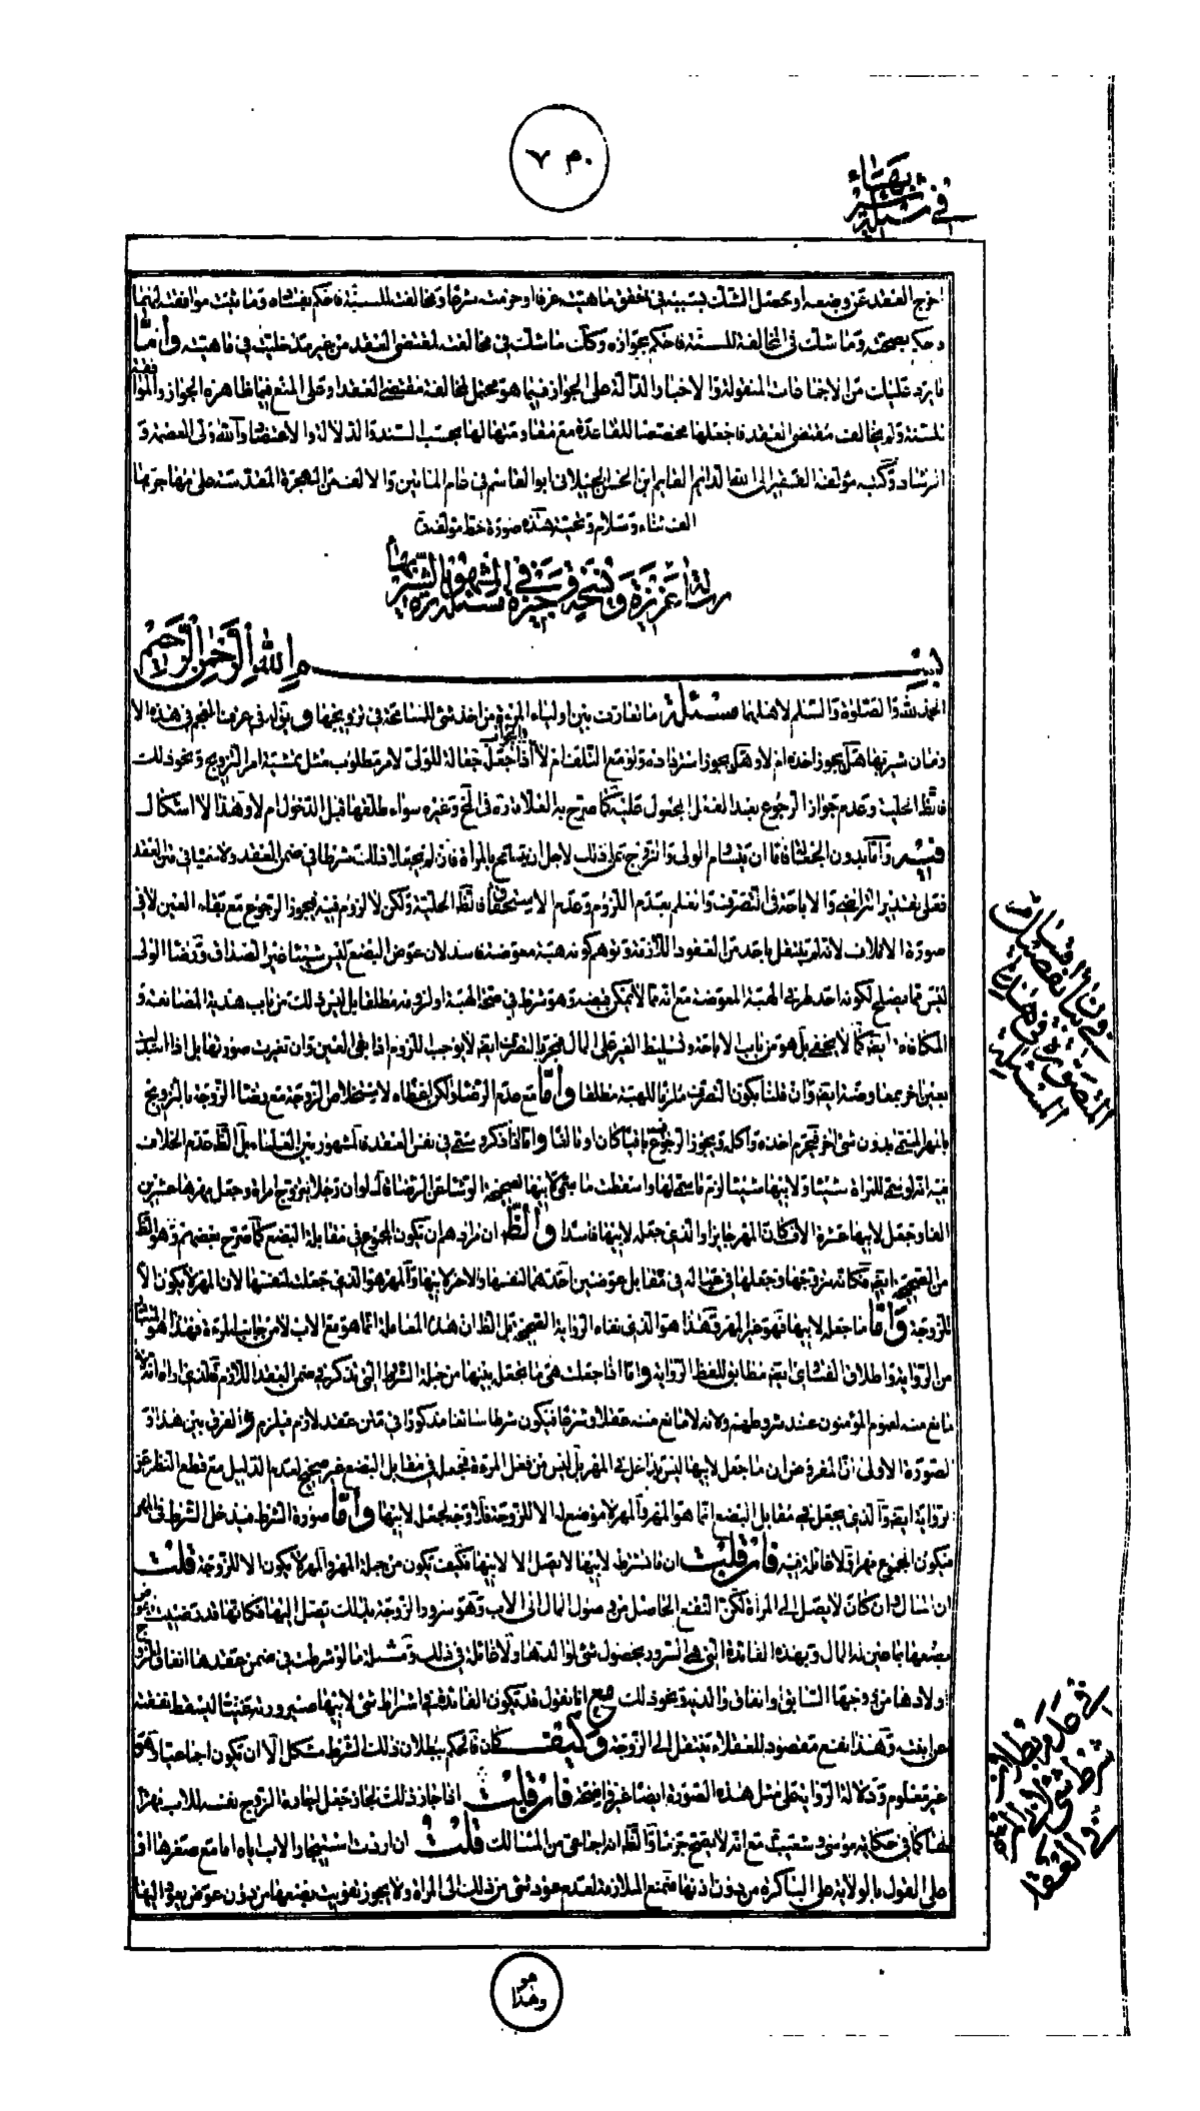 ٧٠٢
في مسئلة شيربهاء
اخرج العقد عن وضعه او حصل الشك بسببه في تحقق ماهيته عرفا او حرمته شرعا ومخالفته للسنة فاحكم بفساده وما ثبت موافقته لهما
فاحكم بصحته وما شك في المخالفة للسنة فاحكم بجوازه وكك ما شك في مخالفته لمقتضى العقد من غير مدخلية في ماهيته واما
ما يرد عليك من الاجماعات المنقولة والاخبار الدالة على الجواز فيما هو محتمل لمخالفة مقتضى العقد او على المنع فيما ظاهره الجواز والموافقة
للسنة ولم يخالف مقتضى العقد فاجعلها مخصصا للقاعدة مع مقاومتها لها بحسب السند والدلالة والاعتضاد والله ولي العصمة و
الرشاد وكتبه مؤلفه الفقير الى الله الدائم ابن الحسن الجيلاني ابو القاسم في عام المائتين والالف من الهجرة المقدسة على مهاجرها
الف ثناء وسلام وتحية هذه صورة خط مؤلفه
رسالة عزيزة ونسخة وجيزة في مسئلة المشهور بالشيربها
بسم الله الرحمن الرحيم
الحمد لله والصلوة والسلم لاهلهما مسئلة ما تعارف بين اولياء المرئة من اخذ شئ للمسامحة في تزويجها ويقال في عرف العجم في هذه الا
زمان شيربها هل يجوز اخذه ام لا وهل يجوز استرداده ولو مع التلف ام لا الجواب اذا جعل جعالة للولي لامر مطلوب مثل تمشية امر التزويج ونحو ذلك
فالظ الحلية وعدم جواز الرجوع بعد الفعل المجعول عليه كما صرح به العلامة في وغيره سواء طلقها قبل الدخول ام لا وهذا لا اشكال
فيه واما بدون الجعالة فاما ان يتسالم الولي والزوج على ذلك لاجل ان يسامح بالمراة فان لم يجعلا ذلك شرطا في ضمن العقد ولا شيئا في متن العقد
فعلى تقدير التراضي والاباحة في التصرف والعلم بعدم اللزوم وعدم الاستحقاق فالظ الحلية ولكن لا لزوم فيه فيجوز الرجوع مع بقاء العين لا في
صورة الاتلاف لانه لم ينتقل باحد من العقود اللازمة وتوهم كونه هبة معوضة فاسد لان عوض البضع ليس شيئا غير الصداق ورضا الولي
ليس مما يصلح لكونه احد طرفي الهبة المعوضة مع انه مما لا يمكن قبضه وهو شرط في صحة الهبة او لزومه مطلقا بل ليس ذلك من باب هدية المصانعة و
المكافاة ايضا كما لا يخفى بل هو من باب الاباحة وتسليط الغير على المال فمجرد التصرف ايضا لا يوجب اللزوم اذا بقي العين وان تغيرت صورتها بل اذا
بعين اخر بمعاوضة ايضا وان قلنا بكون التصرف ملزما للهبة مطلقا واما مع عدم الرضا ولكن اعطاه لاستخلاص الزوجة مع رضا الزوجة بالتزويج
بالمهر المسمى بدون شئ اخر فيحرم اخذه واكله ويجوز الرجوع فيه باقيا كان او تالفا واما اذا ذكر وسمي في نفس العقد فالمشهور بين علمائنا بل الظ عدم الخلاف
فيه انه لو سمى للمراة شيئا ولابيها شيئا لزم ما سمى لها وسقطت ما سمى لابيها لصحيحة الوشاء عن الرضا قال لو ان رجلا تزوج امراة وجعل مهرها عشرين
الفا وجعل لابيها عشرة الاف كان المهر جايزا والذي جعله لابيها فاسدا والظ ان مرادهم ان يكون المجموع في مقابل البضع كما صرح بعضهم وهو الظ
من الصحيحة ايضا فكانه زوجها وجعلها في حباله في مقابل عوضين احدهما لنفسها والاخر لابيها والمهر هو الذي جعلت لنفسها لان المهر لا يكون الا
للزوجة واما ما جعل لابيها فهو غير المهر وهذا هو الذي نفاه الرواية الصحيحة بل الظ ان هذه المعاملة انما هو مع الاب لا من جانب المرءة فهذا هو
من الرواية واطلاق الفساد ايضا مطابق للفظ الرواية واما اذا جعلت هي ما يجعل بينها من جملة الشروط التي تذكر في ضمن العقد اللازم فالذي اراه انه لا
مانع منه لعموم المؤمنون عند شروطهم ولانه لا مانع منه عقلا وشرعا فيكون شرطا سائغا مذكورا في متن عقد لازم فيلزم والفرق بين هذا و
الصورة الاولى ان المفروض ان ما جعل لابيها ليس بداخل في المهر بل ليس من فعل المرءة فجعل في مقابل البضع غير صحيح لعدم الدليل مع قطع النظر عن
الرواية ايضا والذي يجعل في مقابل البضع انما هو المهر والمهر لا موضع له الا للزوجة فلا وجه لجعل لابيها واما صورة الشرط فيدخل الشرط في المهر
فيكون المجموع مهرا ولا غائلة فيه فان قلت ان ما شرط لابيها لا يصل الا لابيها فكيف يكون من جملة المهر والمهر لا يكون الا للزوجة قلت
ان المال وان كان لا يصل الى المراة لكن النفع الحاصل من وصول المال الى الاب وهو سرور الزوجة بذلك يصل اليها فكانها قد رضيت بعوض
بضعها بما عين له المال وبهذه الفائدة التي هي السرور بحصول شئ لوالدها ولا غائلة في ذلك ومثله ما لو شرطت في ضمن عقدها انفاق الزوج
اولادها من زوجها السابق او انفاق والديه ونحو ذلك مع انا نقول قد يكون الفائدة في اشتراط شئ لابيها صيرورته غنيا ليسقط نفقته
عن ابنته وهذا نفع مقصود للعقلاء ينتقل الى الزوجة وكيف كان فالحكم ببطلان ذلك الشرط مشكل الا ان يكون اجماعيا وهو
غير معلوم ودلالة الرواية على مثل هذه الصورة ايضا غير واضحة فان قلت اذا جاز ذلك لجاز جعل اجارة الزوج نفسه للاب مهرا
لها كما في حكاية موسى وشعيب مع انه لا يصح جزما والظ انه اجماعي من المسالك قلت ان اردت استيجار الاب اياه اما مع صغرها او
على القول بالولاية على الباكرة من دون اذنها فنمنع الملازمة لعدم عود شئ من ذلك الى المراة ولا يجوز تفويت بضعها من دون عوض يعود اليها
في بيان اقسام
المتصورة في هذه
المسئلة
شرط شئ لاب المرءة
في العقد
هو
وهذا